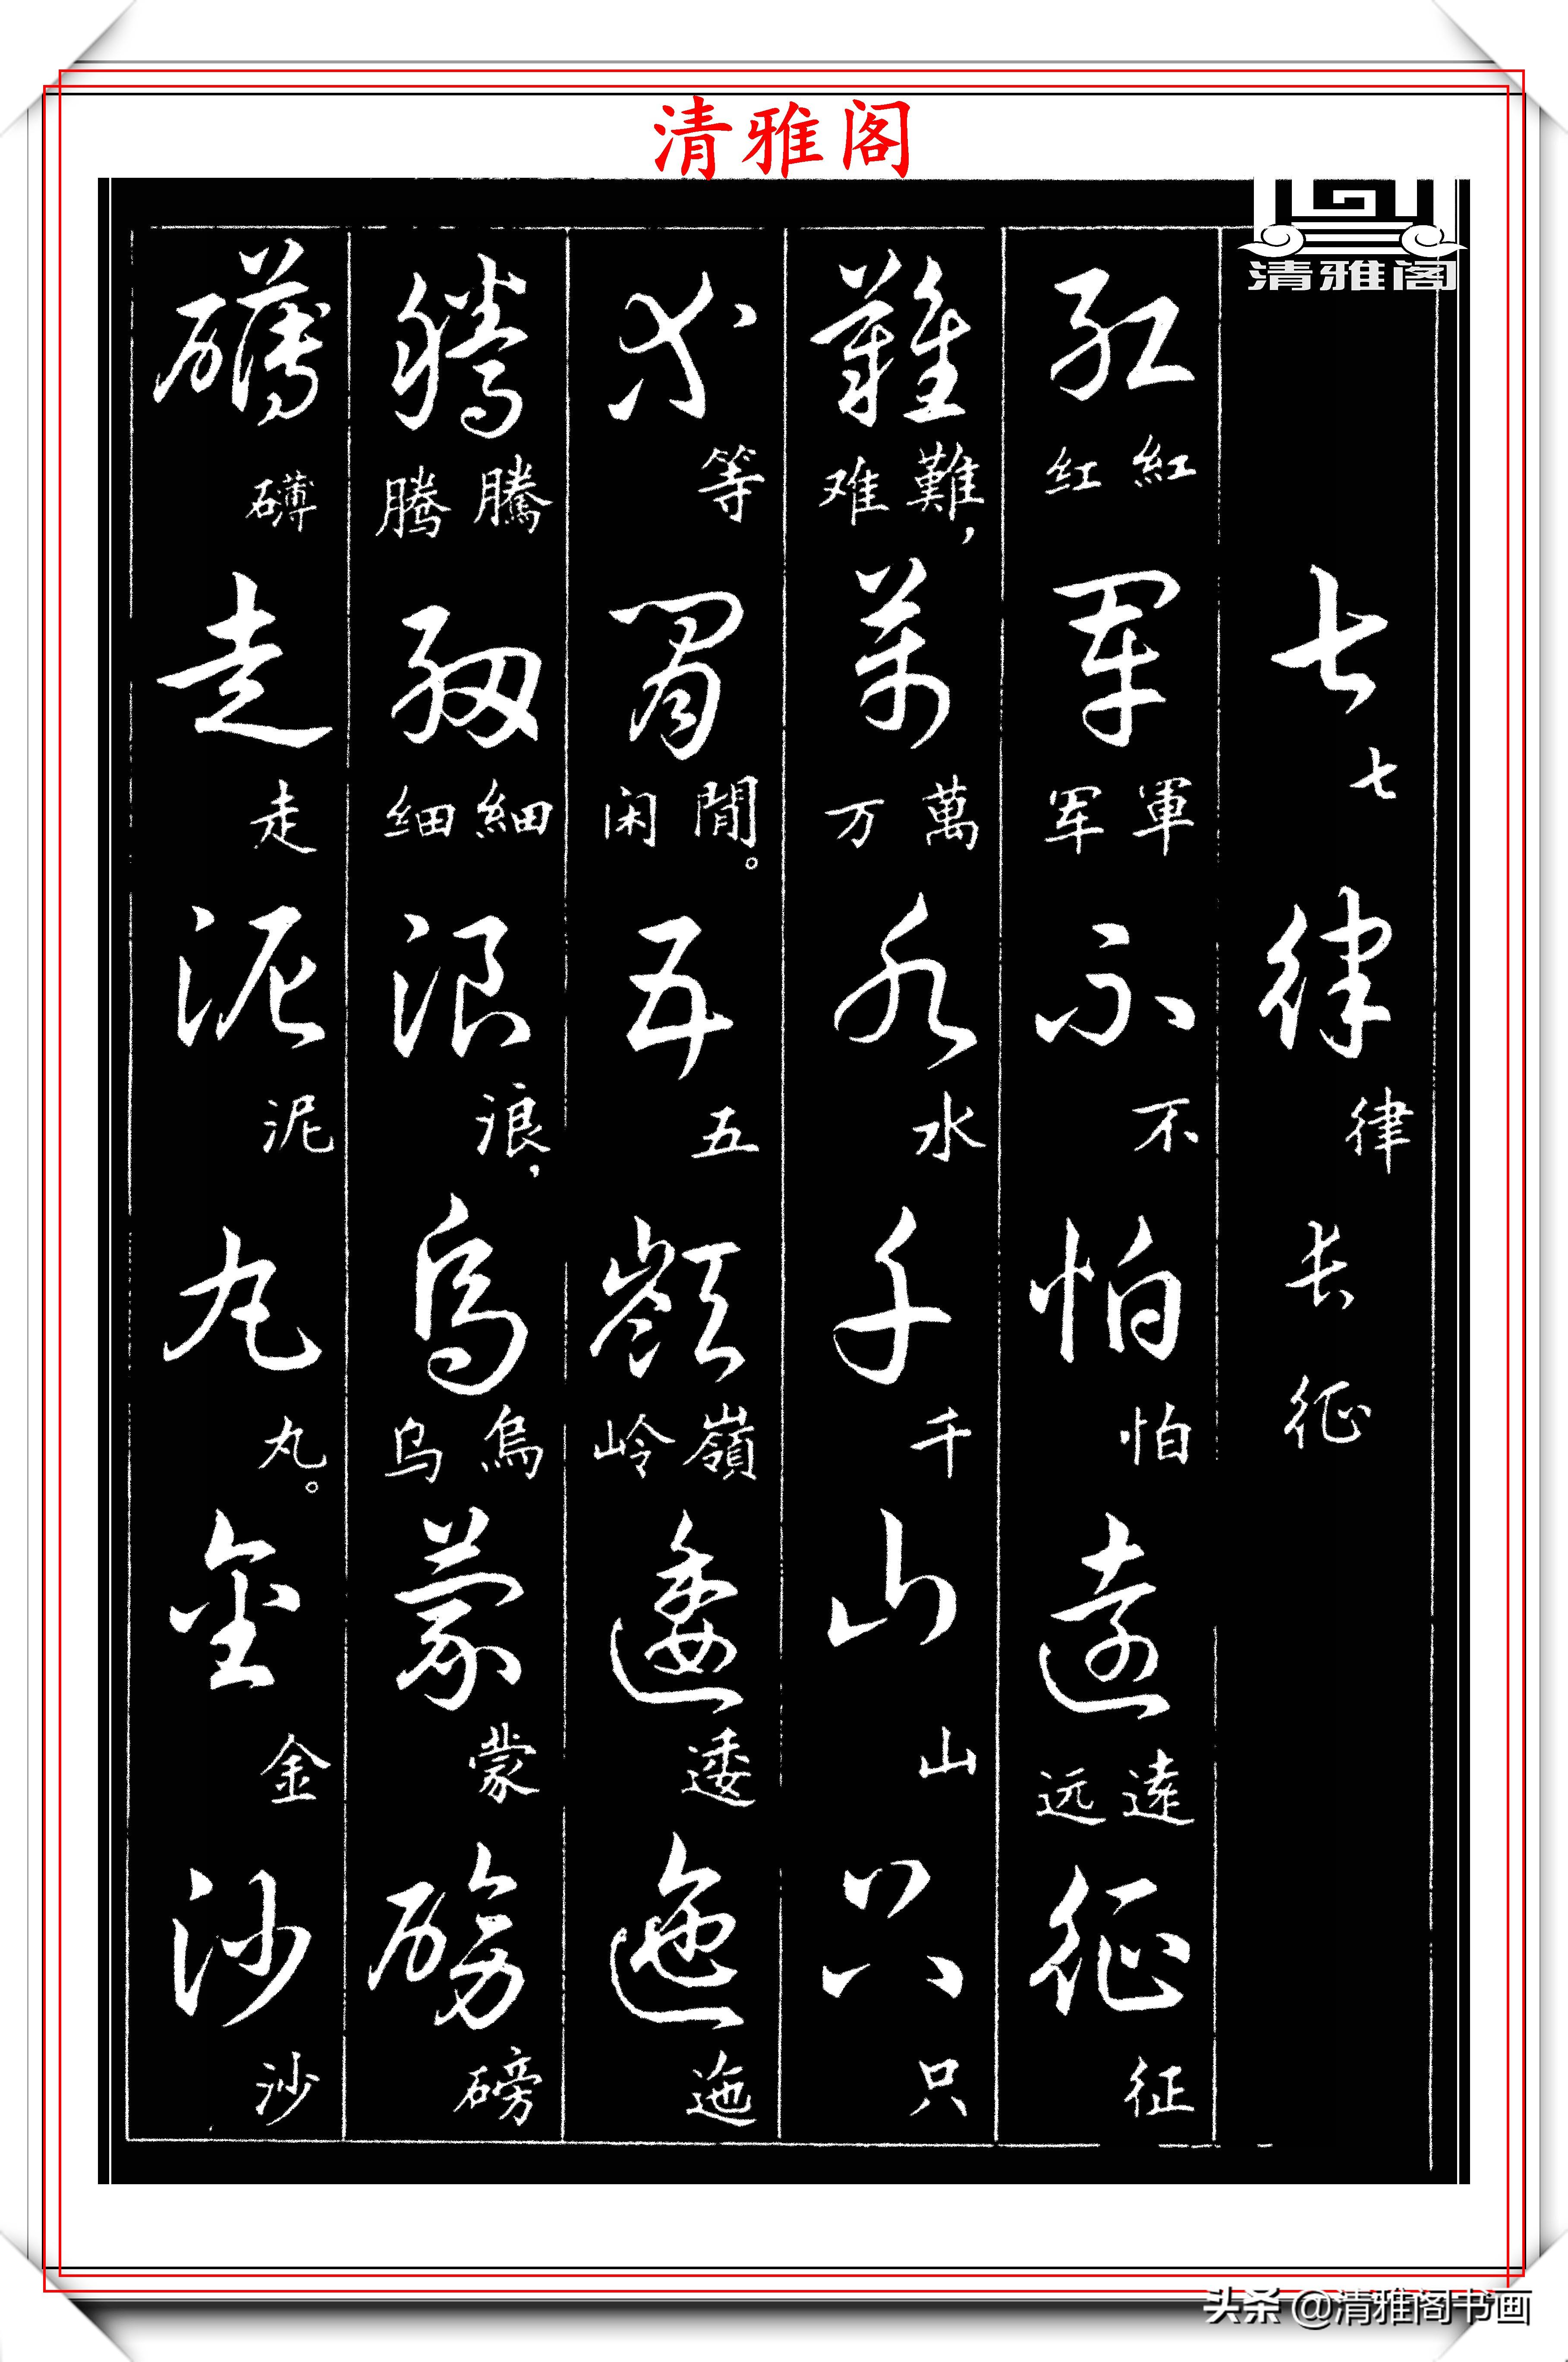 清雅阁
清雅阁
七七律律长征
红紅红军軍军不不怕怕遠遠远征征
難難,难萬萬万水水千千山山只只
等等閒閒。闲五五嶺嶺岭逶逶迤迤
騰騰腾細細细浪浪,烏烏乌蒙蒙磅磅
礴礴走走泥泥丸丸。金金沙沙
头条 @清雅阁书画